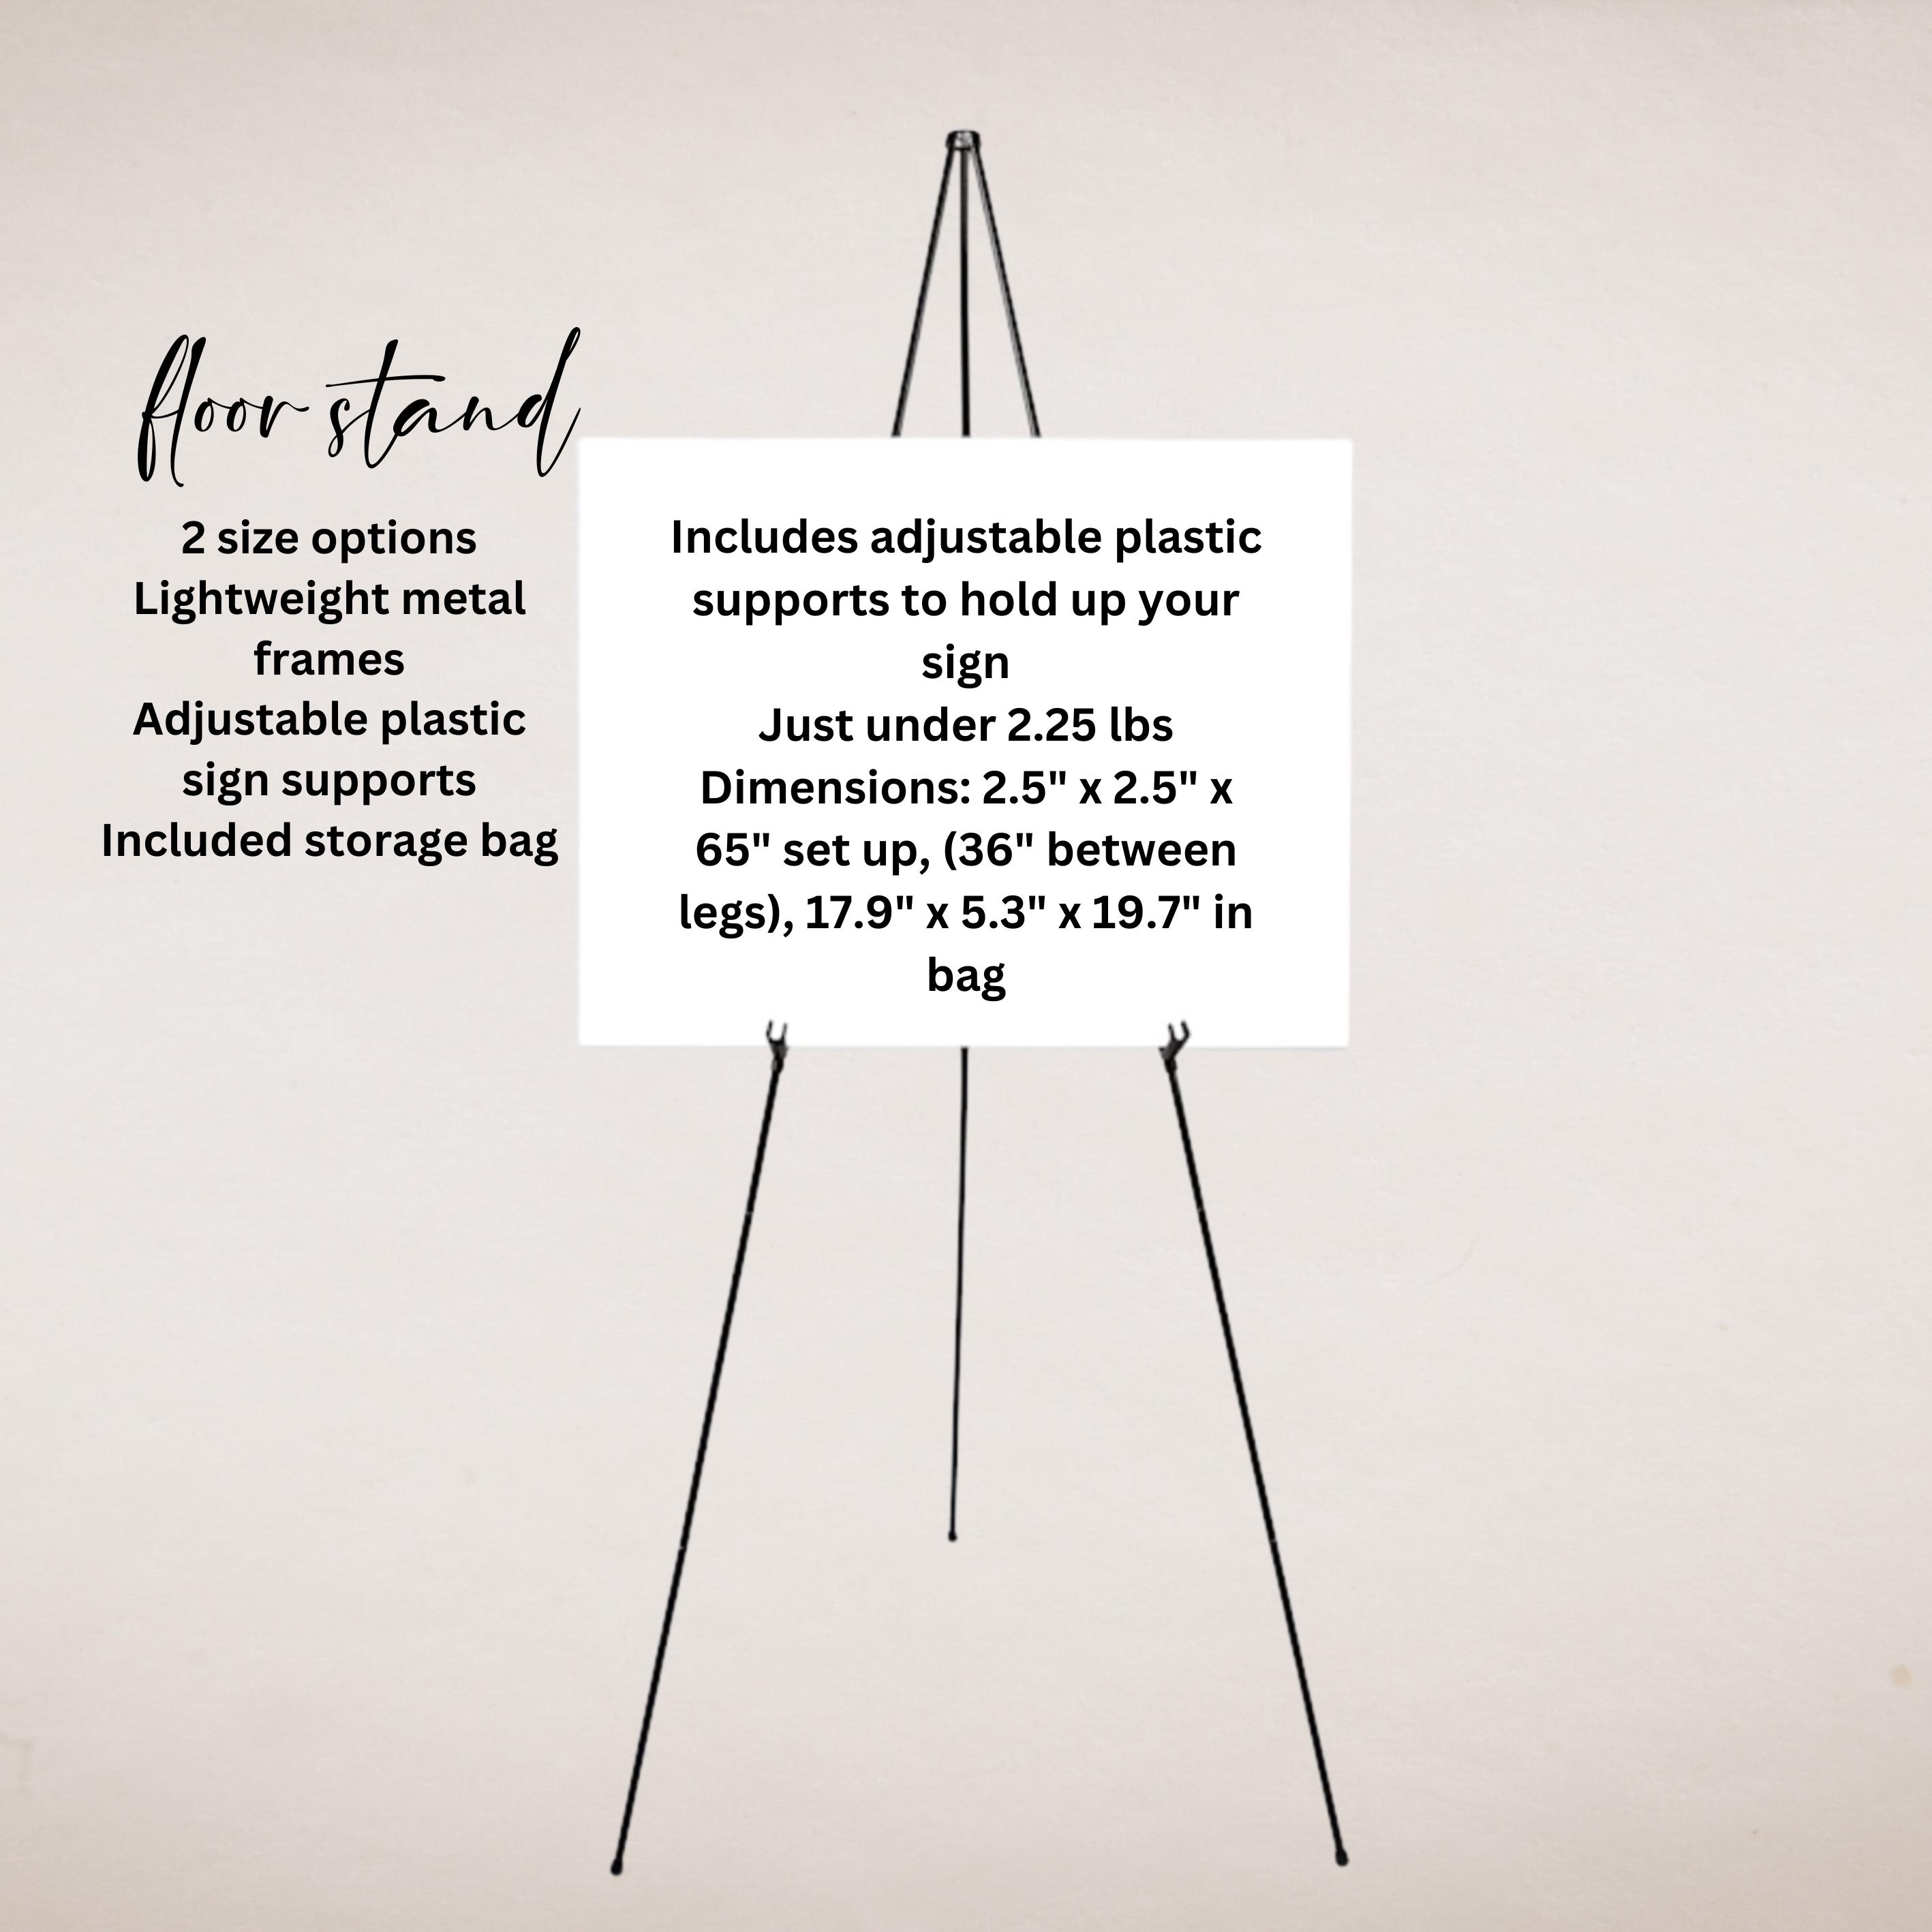 floor stand
2 size options
Lightweight metal
frames
Adjustable plastic
sign supports
Included storage bag
Includes adjustable plastic
supports to hold up your
sign
Just under 2.25 lbs
Dimensions: 2.5" x 2.5" x
65" set up, (36" between
legs), 17.9" x 5.3" x 19.7" in
bag